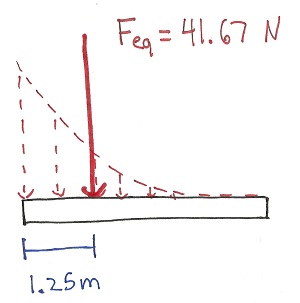 Feq = 41.67 N
1.25m